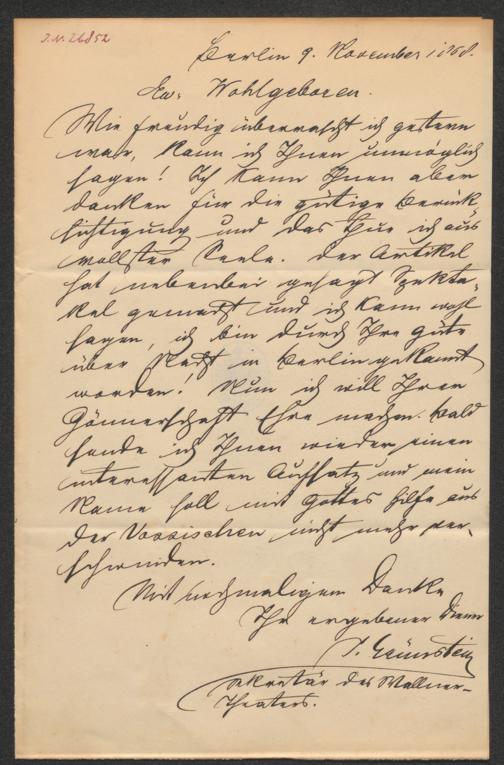 J.N. 26852
Berlin 9. November 1868.
Ew. Wohlgeboren.
Wie freudig überrascht ich gestern
war, kann ich Ihnen unmöglich
sagen! Ich kann Ihnen aber
danken für die gütige Berück-
sichtigung und das thue ich aus
vollster Seele. Der Artikel
hat nebenbei gesagt Spekta-
kel gemacht und ich kann wohl
sagen, ich bin durch Ihre Güte
über Nacht in Berlin gekannt
worden! Nun ich will Ihrer
Gönnerschaft Ehre machen. Bald
sende ich Ihnen wieder einen
interessanten Aufsatz und mein
Name soll mit Gottes Hilfe aus
der Vossischen nicht mehr ver-
schwinden.
Mit nochmaligem Danke
Ihr ergebener Diener
Sekretär des Wallner-
Theaters.